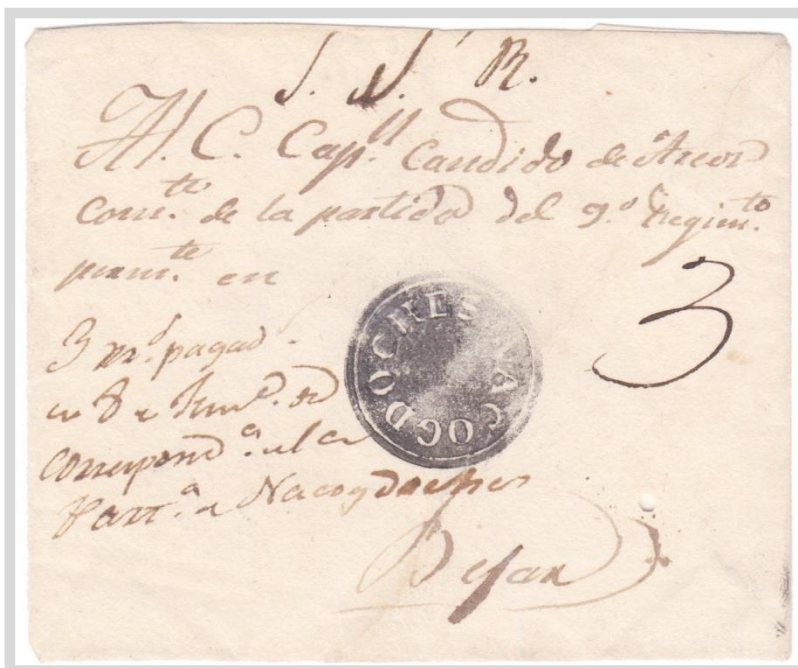 S. N. R.
Al. C. Cap.n Candido de Arcos
Com.te de la partida del 9.o Regim.to
perm.te en
3 rr.s pagad.s
en 8 de
correspond.a al
Part.a Nacogdoches
3
NACOGDOCHES
Bejar